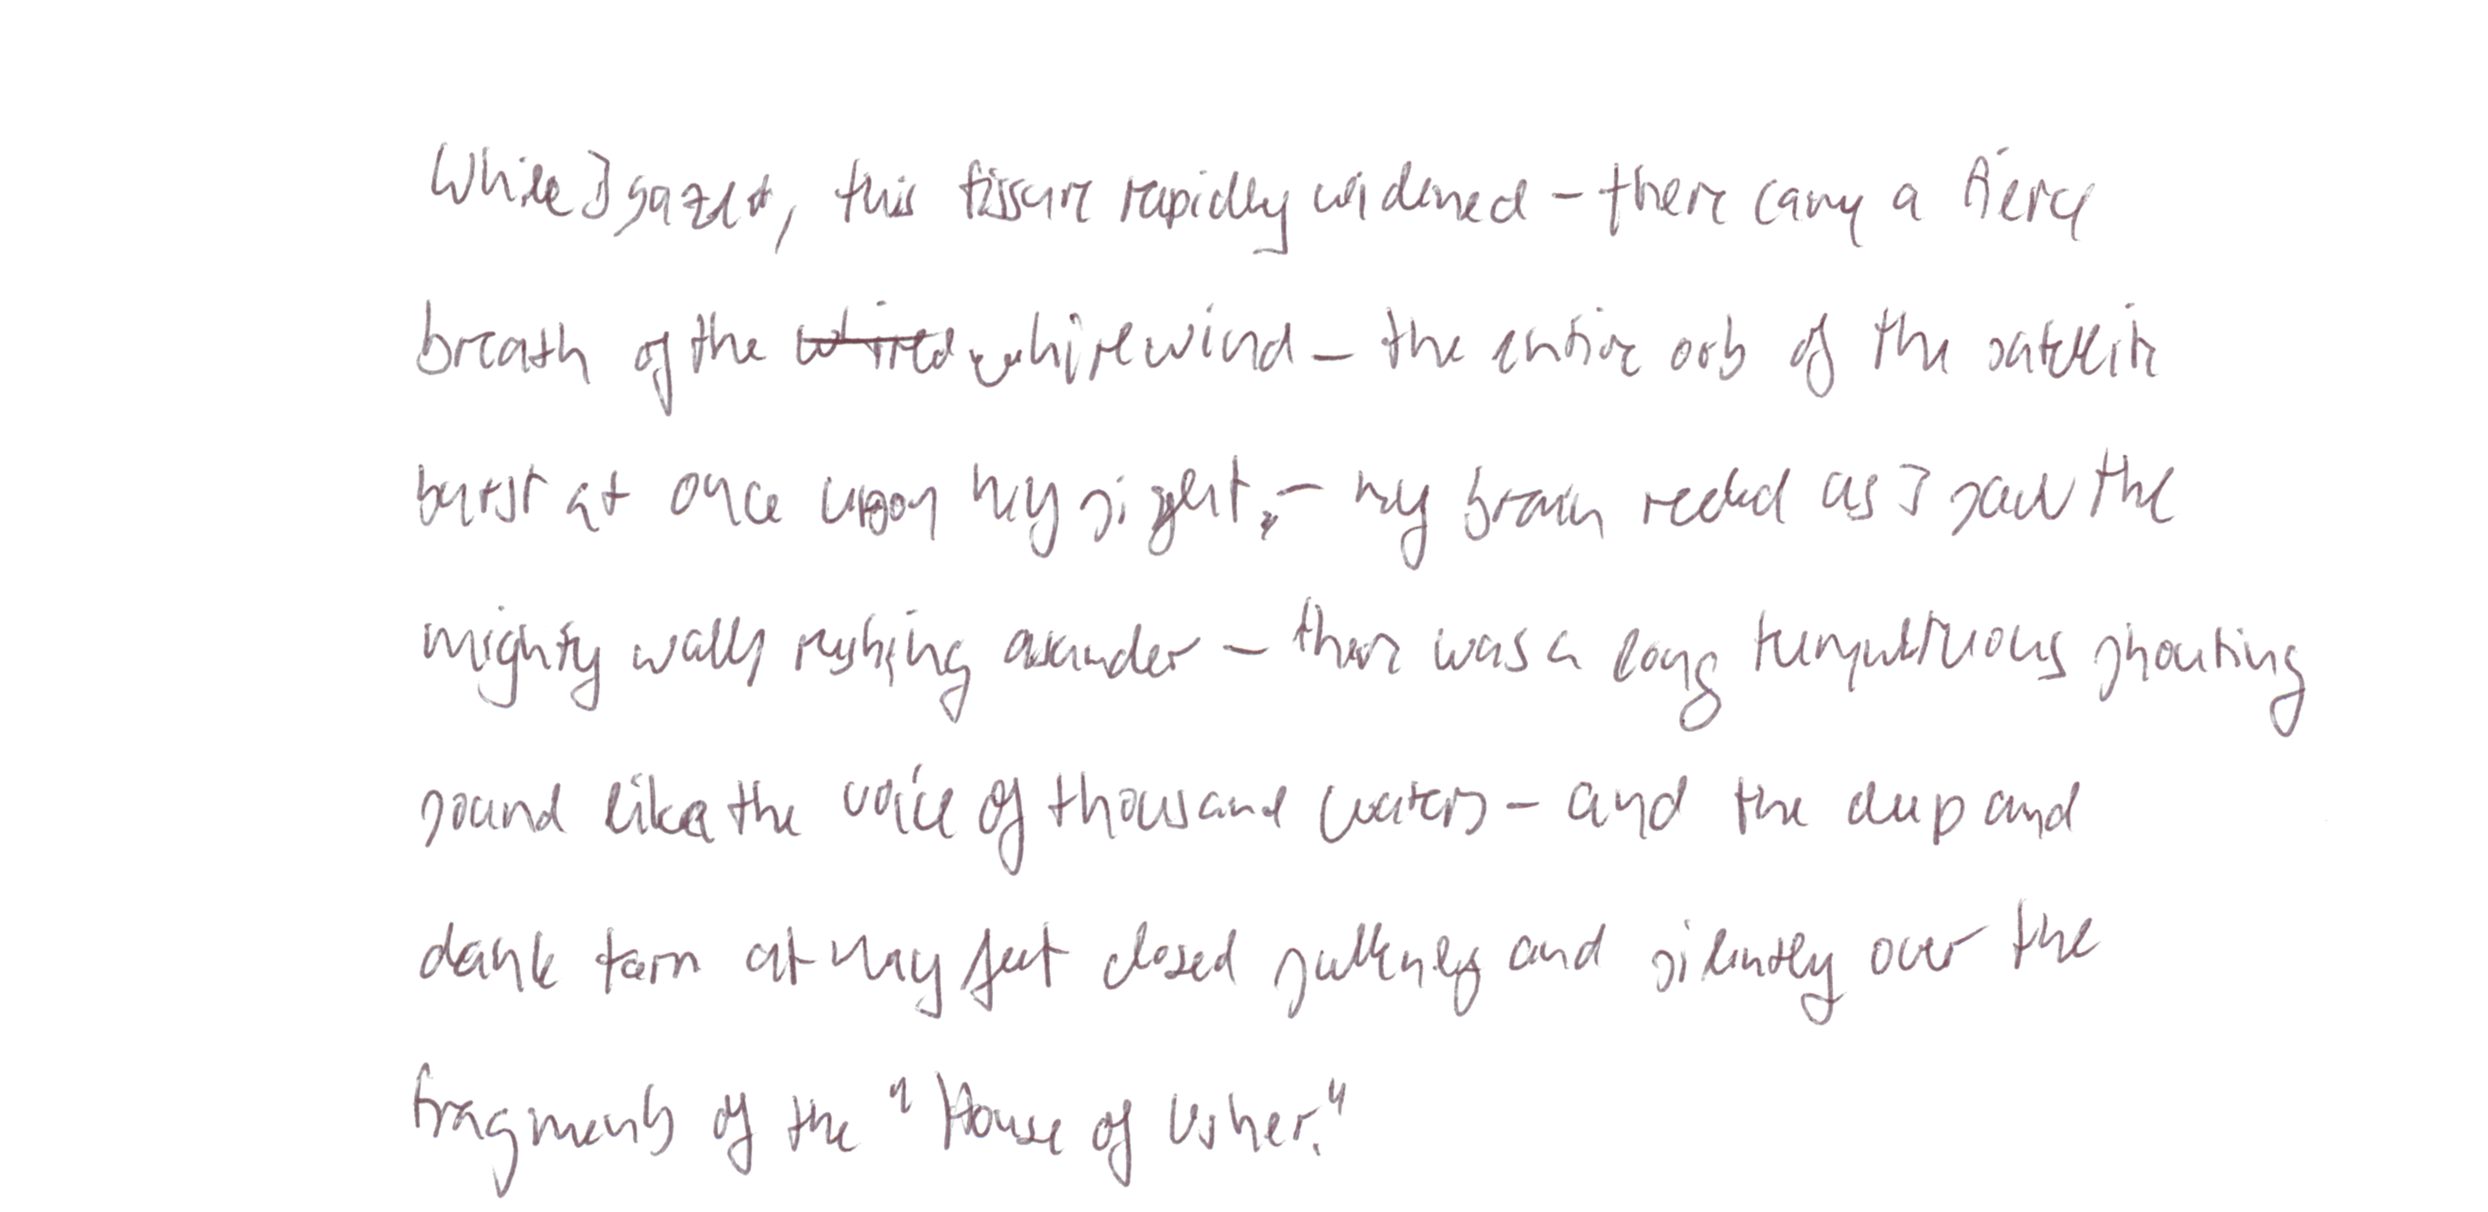 While I gazed, this fissure rapidly widened – there came a fierce
breath of the whirewind – the entire orb of the satellite
burst at once upon my sight, – my brain reeled as I saw the
mighty walls rushing asunder – there was a long tumultuous shouting
sound like the voice of thousand waters – and the deep and
dank tarn at my feet closed sullenly and silently over the
fragments of the "House of Usher."